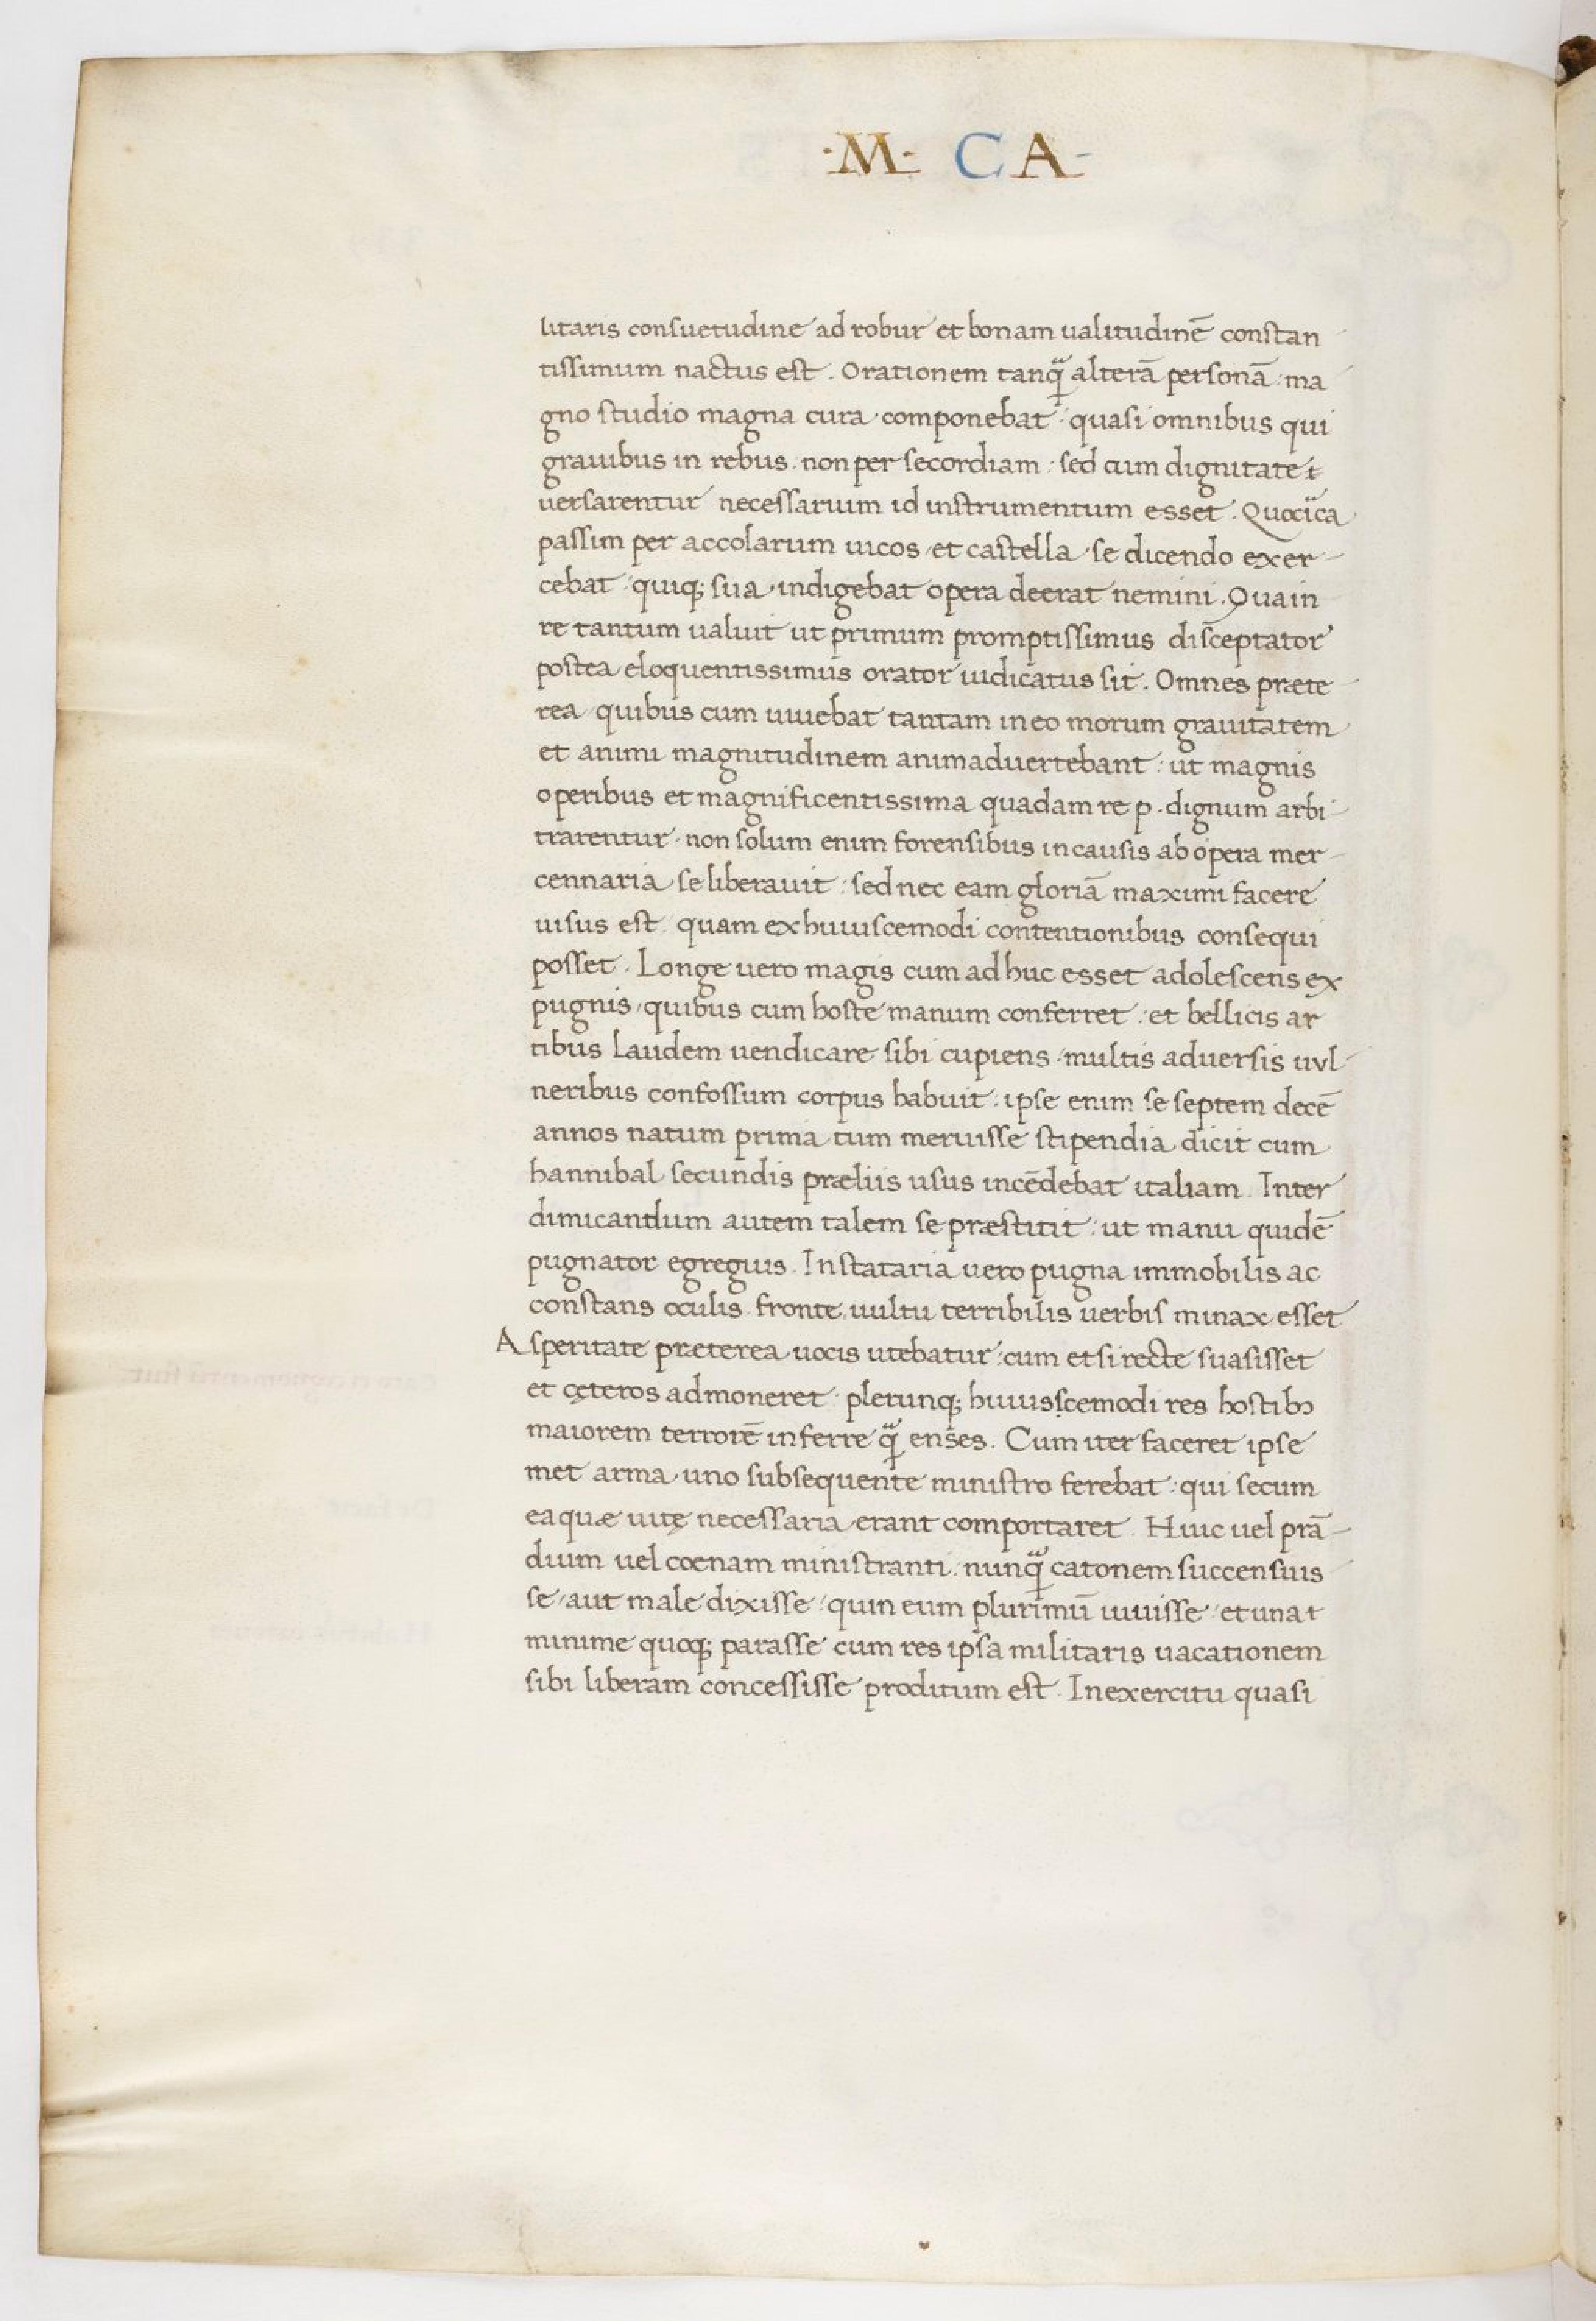 ·M· CA-
litaris consuetudine ad robur et bonam ualitudinē constan
tissimum nactus est. Orationem tanq̃ alterā personā: ma
gno studio magna cura componebat: quasi omnibus qui
grauibus in rebus. non per secordiam: sed cum dignitate
uersarentur necessarium id instrumentum esset. Quocirca
passim per accolarum uicos et castella se dicendo exer-
cebat: quiq; sua indigebat opera deerat nemini. Qua in
re tantum ualuit ut primum promptissimus disceptator
postea eloquentissimus orator iudicatus sit. Omnes præte
rea quibus cum uiuebat tantam in eo morum grauitatem
et animi magnitudinem animaduertebant: ut magnis
operibus et magnificentissima quadam re p. dignum arbi-
trarentur. non solum enim forensibus in causis ab opera mer-
cennaria se liberauit: sed nec eam gloriā maximi facere
uisus est quam ex huiuscemodi contentionibus consequi
posset. Longe uero magis cum ad huc esset adolescens ex
pugnis, quibus cum hoste manum conferret: et bellicis ar
tibus laudem uendicare sibi cupiens multis aduersis uul-
neribus confossum corpus habuit: ipse enim se septem decē
annos natum prima tum meruisse stipendia dicit cum
hannibal secundis præliis usus incēdebat italiam. Inter
dimicandum autem talem se præstitit: ut manu quidē
pugnator egregius. In stataria uero pugna immobilis ac
constans oculis fronte uultu terribilis uerbis minax esset
Asperitate præterea uocis utebatur: cum etsi recte suasisset
et cęteros admoneret. plerunq; huiusscemodi res hostibꝫ
maiorem terrorē inferre q̃ enses. Cum iter faceret ipse
met arma uno subsequente ministro ferebat: qui secum
ea quæ uitę necessaria erant comportaret. Huic uel prā-
dium uel coenam ministranti. nunq̃ catonem succensuis
se, aut male dixisse: quin eum plurimū iuuisse, et una
minime quoq; parasse cum res ipsa militaris uacationem
sibi liberam concessisse proditum est. In exercitu quasi